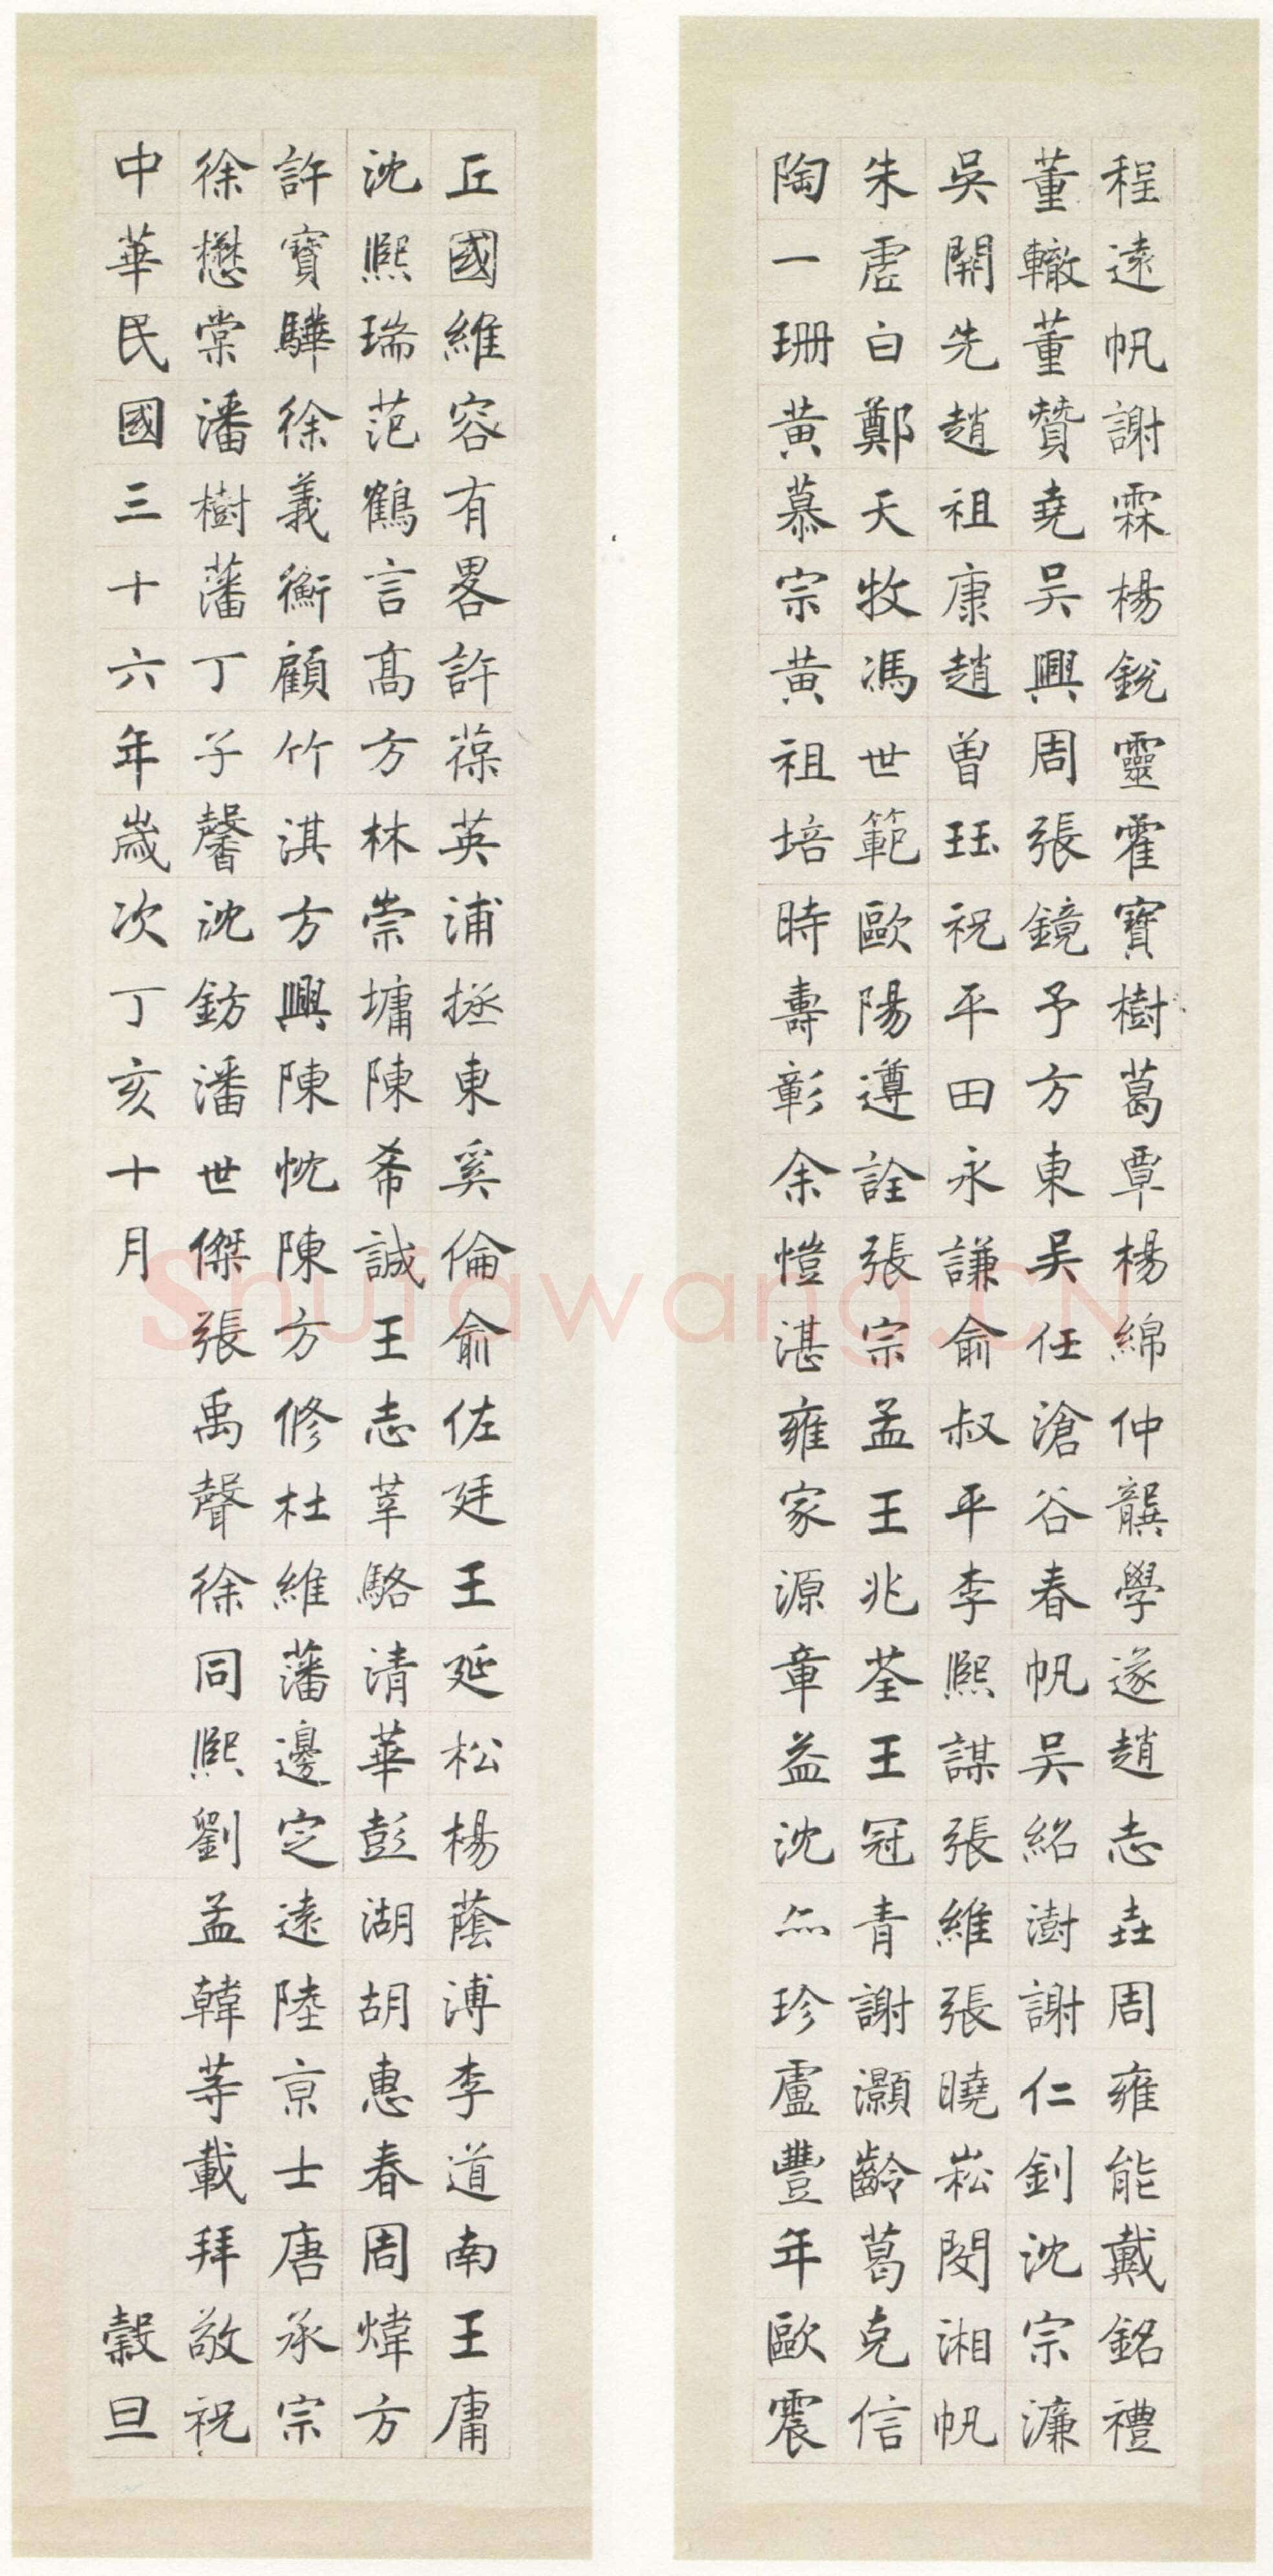 程遠帆謝霖楊銳靈霍寶樹葛覃楊綿仲龔學遂趙志垚周雍能戴銘禮
董轍董贊堯吳興周張鏡予方東吴任滄谷春帆吴紹澍謝仁釗沈宗濂
吳開先趙祖康趙曾珏祝平田永謙俞叔平李熙謀張維張曉崧閔湘帆
朱虛白鄭天牧馮世範歐陽遵詮張宗孟王兆荃王冠青謝灝齡葛克信
陶一珊黃慕宗黃祖培時壽彰余愷湛雍家源章益沈亦珍盧豐年歐震
丘國維容有畧許葆英浦拯東奚倫俞佐廷王延松楊蔭溥李道南王庸
沈熙瑞范鶴言高方林崇墉陳希誠王志莘駱清華彭湖胡惠春周煒方
許寶驊徐義衡顧竹淇方興陳忱陳方修杜維藩邊定遠陸京士唐承宗
徐懋棠潘樹藩丁子馨沈鈁潘世傑張禹聲徐同熙劉孟韓等載拜敬祝
中華民國三十六年歲次丁亥十月 穀旦
Shufawang.CN